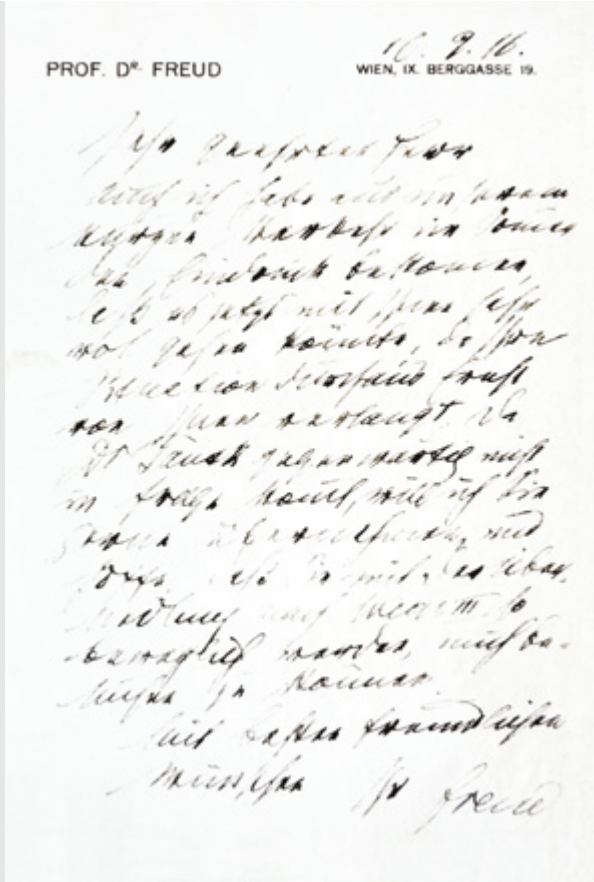 9. 16.
PROF. DR. FREUD WIEN, IX. BERGGASSE 19.
Sehr geehrter Herr
Auch ich habe aus unserem
kurzen Verkehr im Sommer
den Eindruck bekommen,
daß es jetzt mit Ihnen sehr
wol gehen könnte, da Ihre
durchaus Ernst
von Ihnen verlangt. Da
Dr Tausk gegenwärtig nicht
in Frage komt, will ich Sie
gerne übernehmen, und
hoffe, daß Sie mit der Über-
siedlung nach so
beweglich werden, mich be-
suchen zu können.
Mit besten freundlichen
Wünschen Ihr Freud